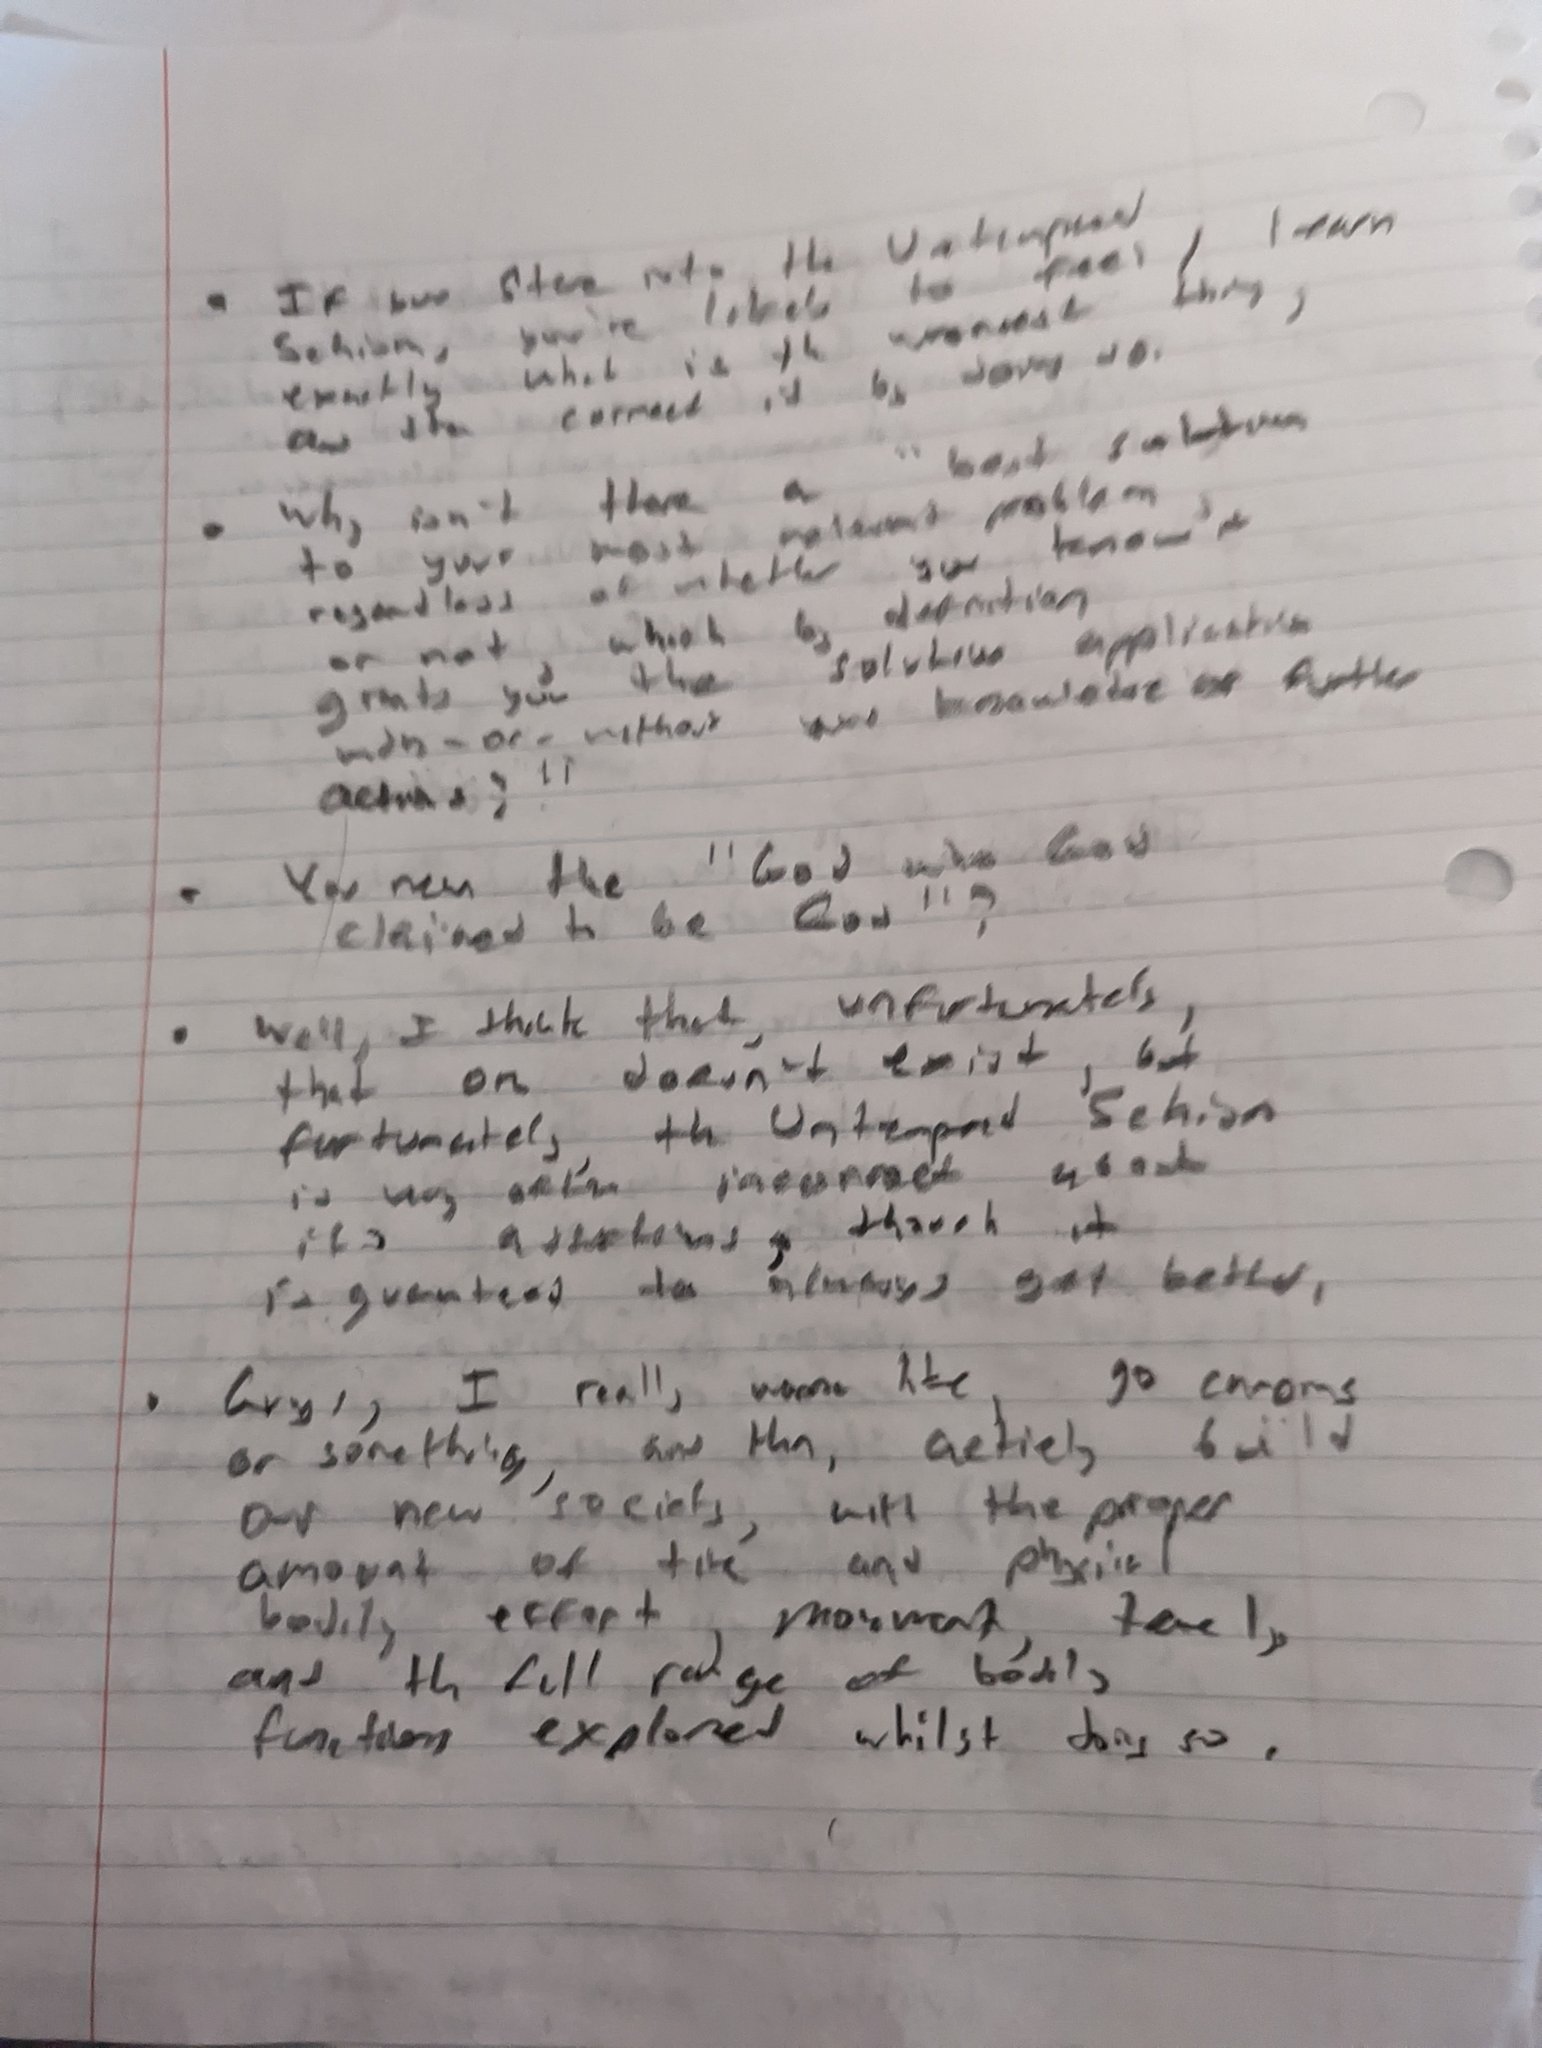 • If you step into the Untempered
Schism, you're likely to feel, learn
exactly what is the wrongest thing,
and then correct it by doing so.
• Why isn't there a "best solution
to your most relevant problem,
regardless of whether you know it
or not, which by definition
grants you the solution application
with-or-without your knowledge or further
actions?"
• You mean the "God who God
claimed to be God"?
• Well, I think that, unfortunately,
that one doesn't exist, but
fortunately, the Untempered Schism
is very often incorrect about
its assertions, though it
is guaranteed to always get better.
• Guys, I really wanna like, go
or something, and then, actively build
our new society, with the proper
amount of time and physical
bodily effort, movement,
and the full range of bodily
functions explored whilst doing so.